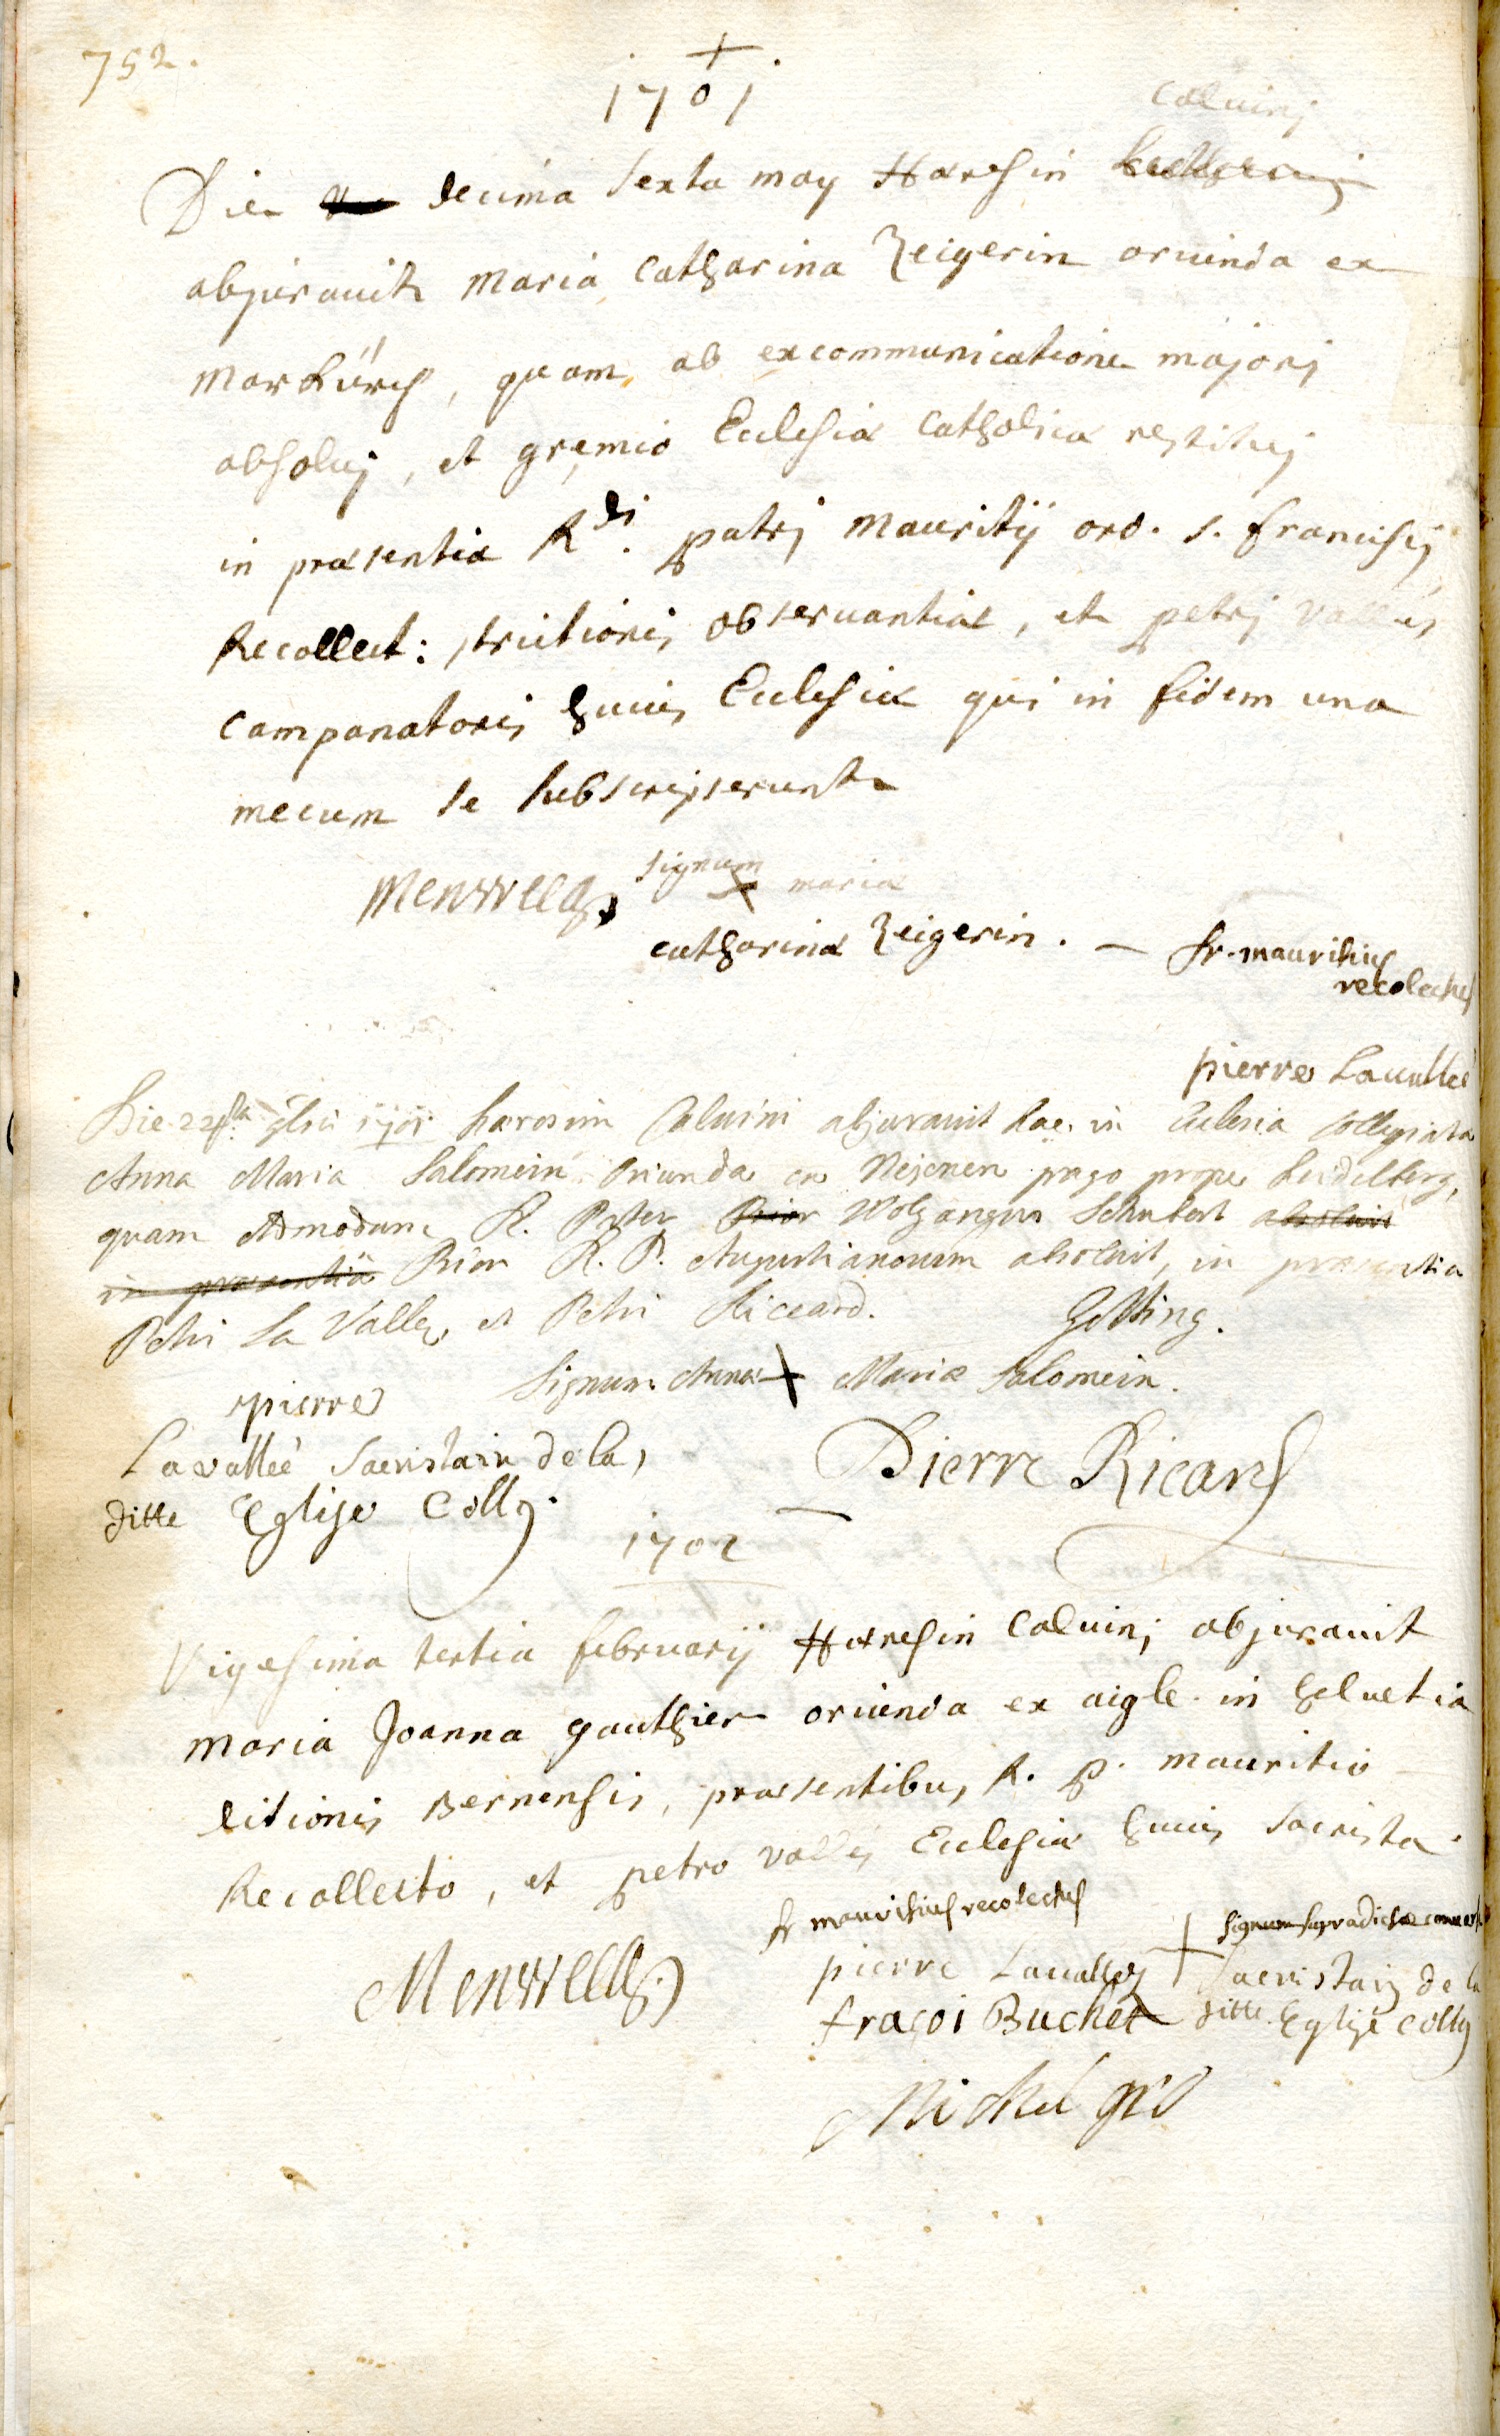 752.
1701
Calvinj
Die decima sexta may Hæresin Lutheranj
abjuravit Maria Catharina Zeigerin oriunda ex
Markürch, quam ab excommunicatione majorj
absoluj, et gremio Ecclesiæ Catholicæ restituj
in præsentia Rdi. patris Mauritij ord. s. francisci
Recollect: strictioris observantiæ, et petrj vallés
Campanatoris huius Ecclesiæ qui in fidem una
mecum se subscripserunt
Menweeg signum + mariæ
catharinæ Zeigerin. — fr. mauritius
recolectus
pierre Lavalleé
Die 22 1701 hæresim Calvini abjuravit hac in Eclesia Collegiata
Anna Maria Salomein oriunda ex Nejenen pago prope Heidelberg,
quam Admodum R. Pater Prior Wolgangus Schubert absoluit
in præsentia Prior R. P. Augustianorum absoluit, in præsentia
Petri La Valle, et Petri Riccard. Gotting.
Signum Annæ + Mariæ Salomein.
pierre
Lavalleé Sacristain de la
ditte Eglise Coll.
Pierre Ricard
1702
Vigesima tertia februarij Hæresin Calvinj abjuravit
Maria Joanna gauthier oriunda ex aigle in helvetia
ditionis Bernensis, præsentibus R. P. Mauritio
Recollecto, et petro vallés Ecclesiæ huius Sacrista.
fr mauritius recolectus
signum supradictæ
Menweeg
pierre Lavalleé + Sacristain de la
fraçoi Buchet ditte Eglise Coll
Michel